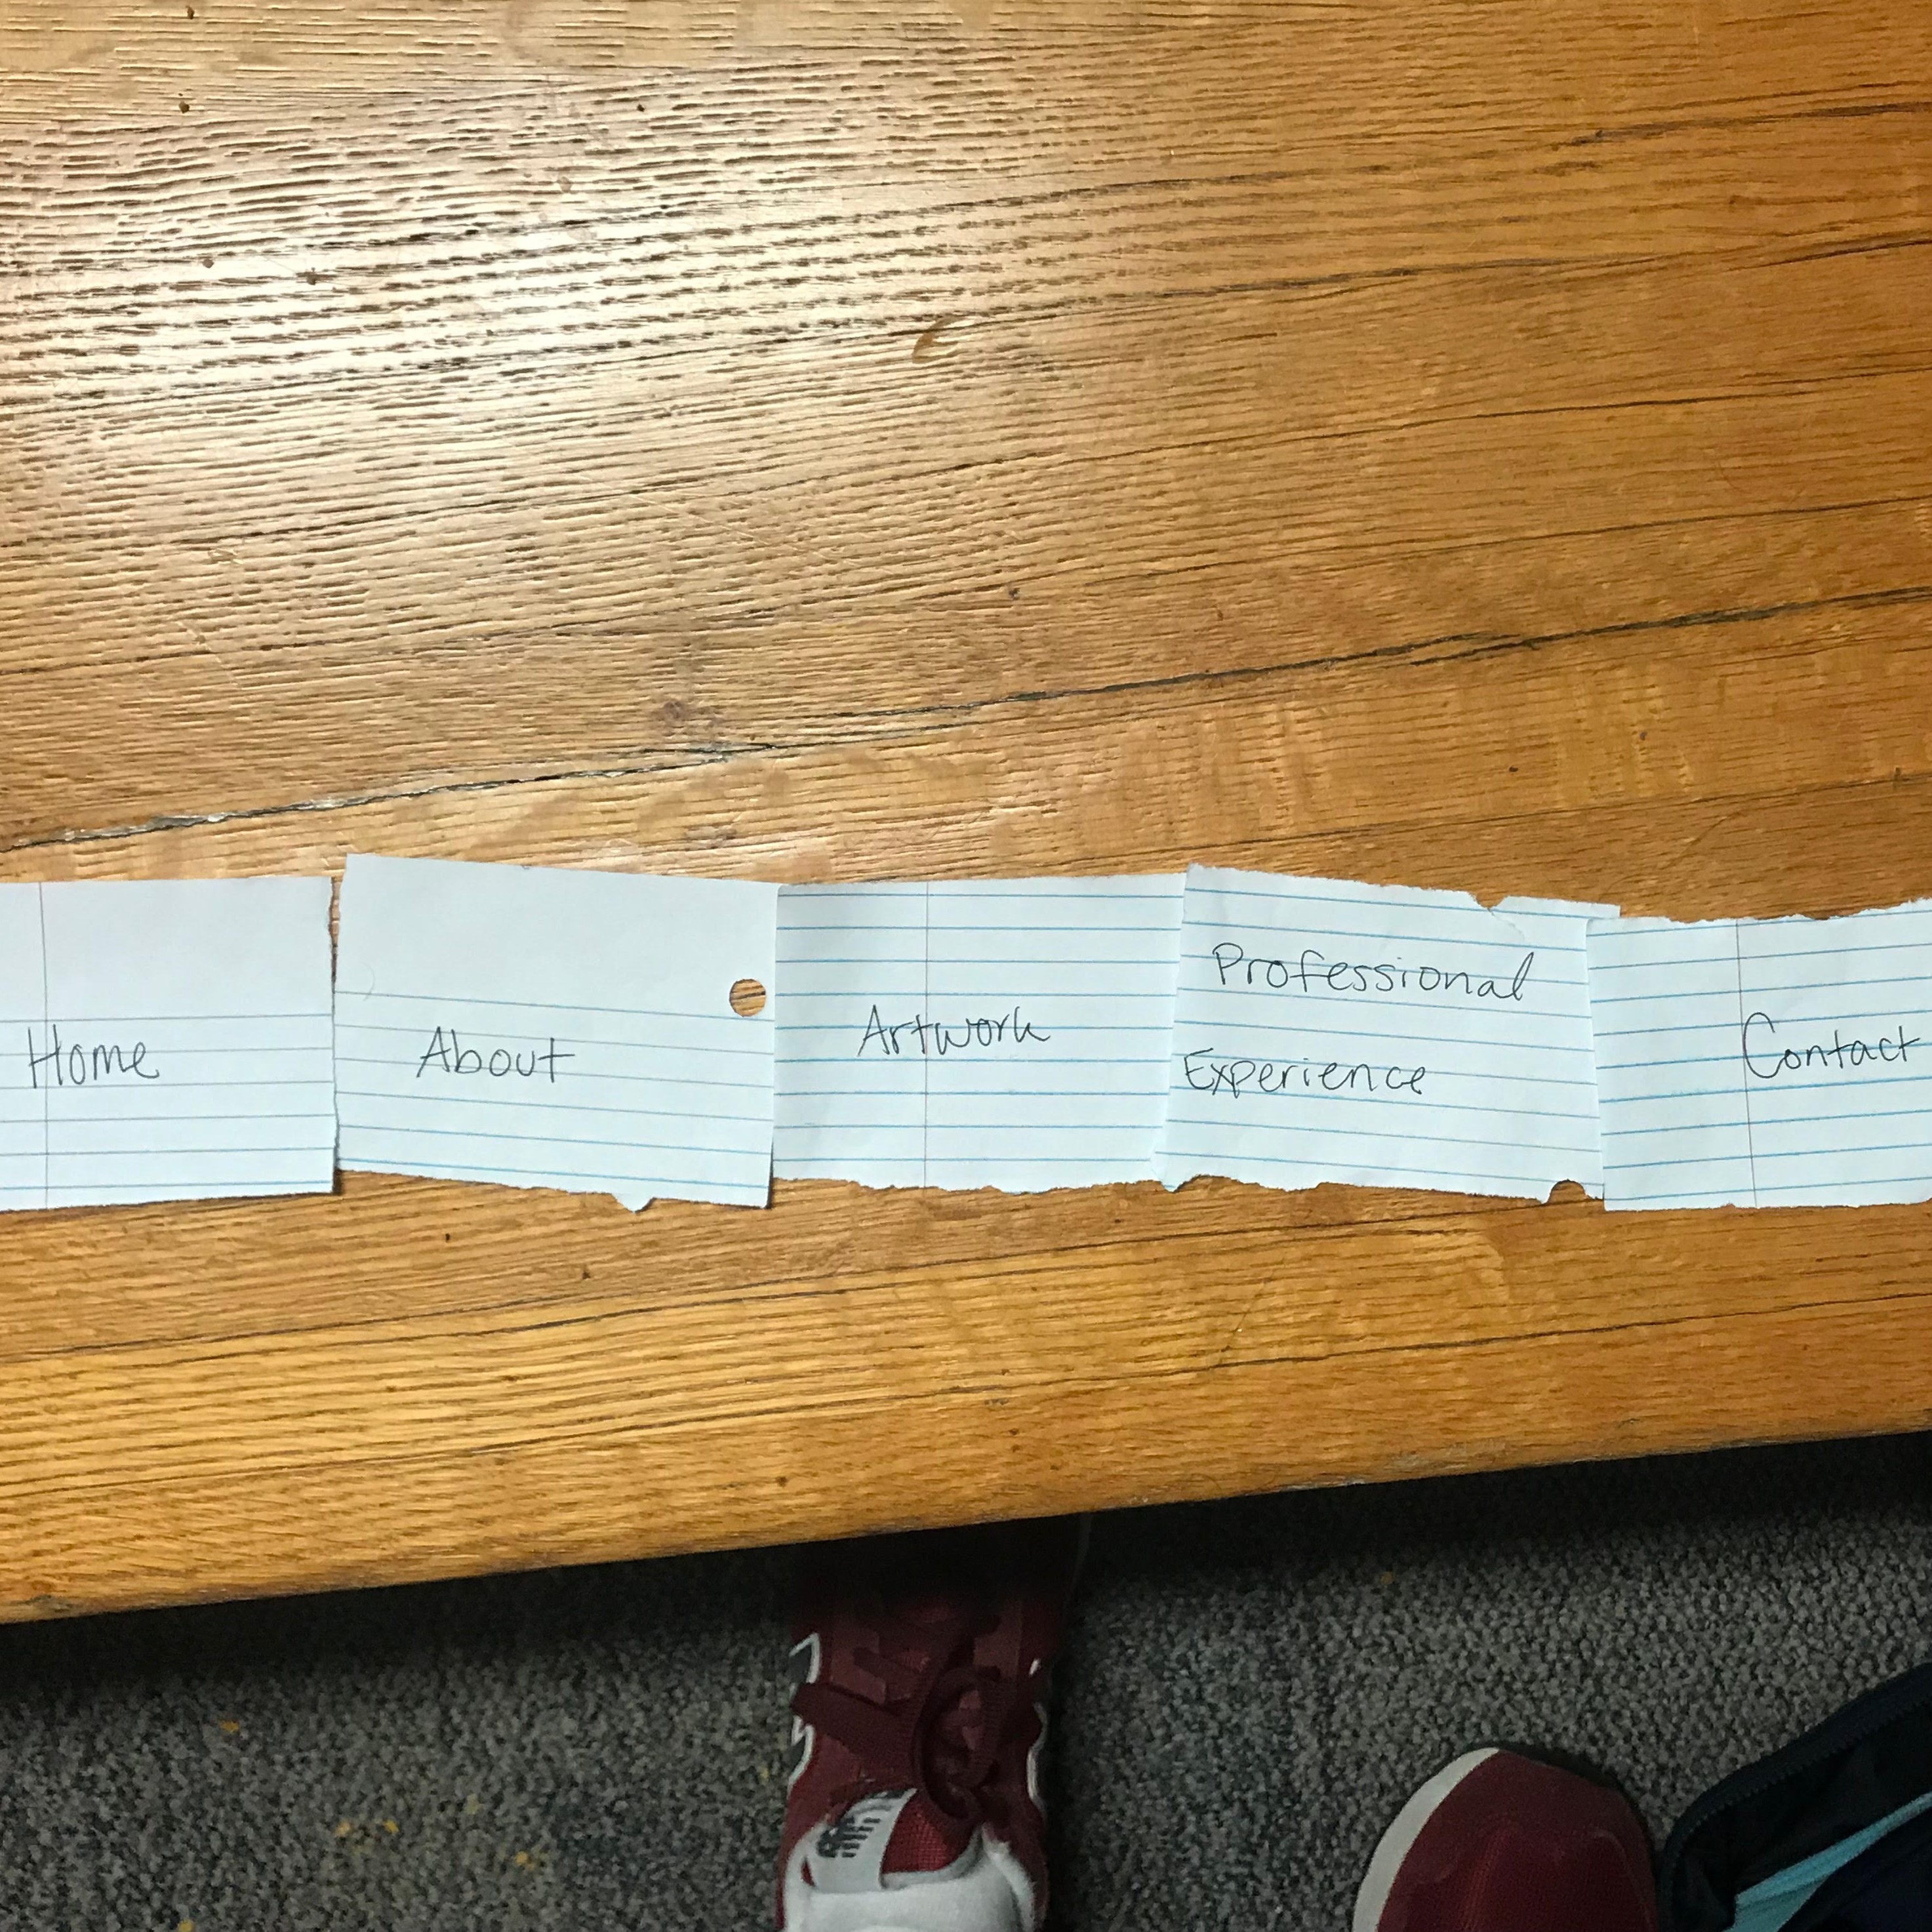 Home
About
Artwork
Professional
Experience
Contact